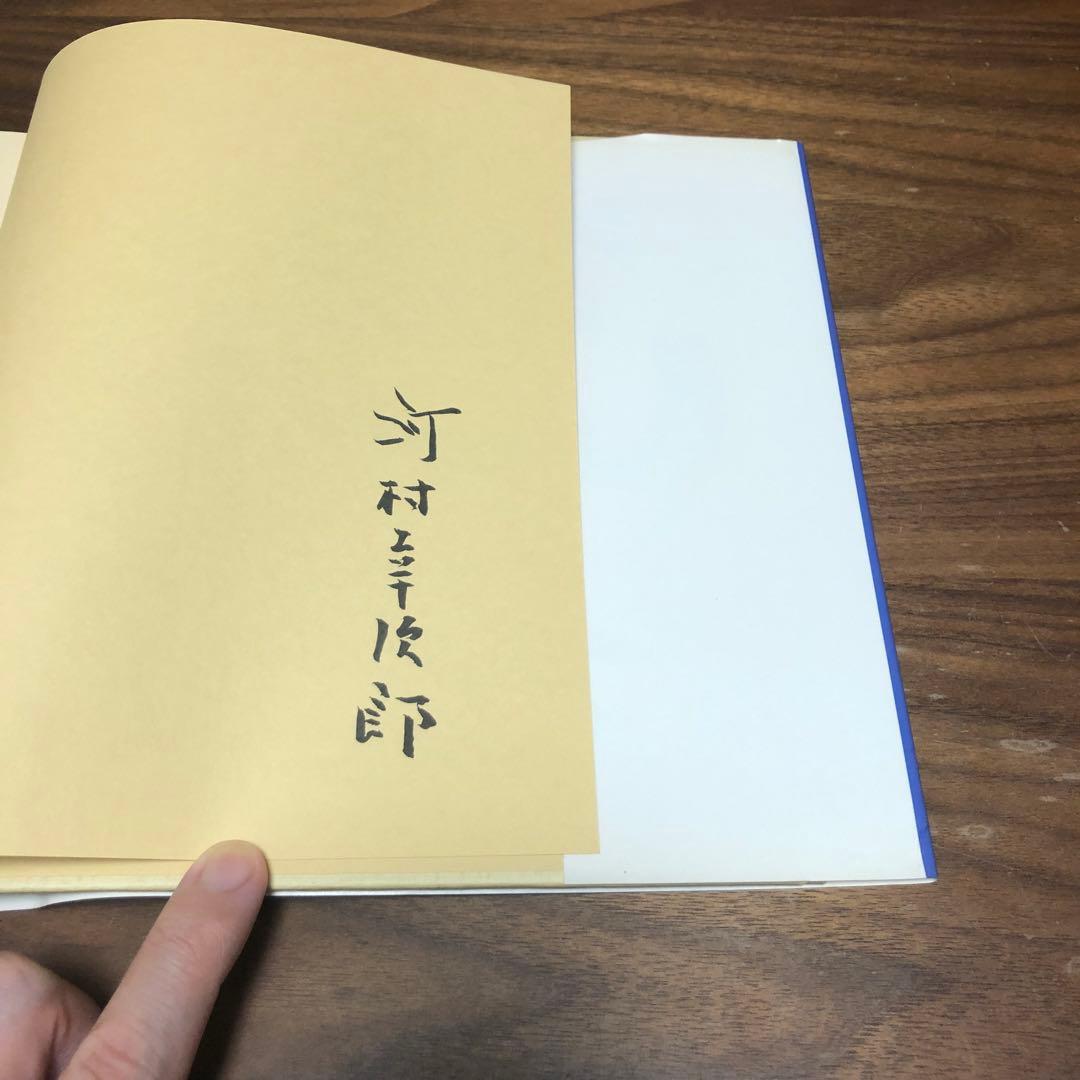 河村幸次郎